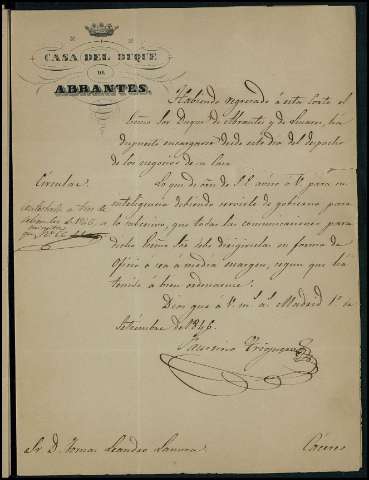 CASA DEL DUQUE
DE
ABRANTES.
Habiendo regresado á esta Corte el
Escmo Sor Duque de Abrantes y de Linares, ha
dispuesto encargarse desde este dia del despacho
de los negocios de su Casa
Circular.
Lo que de orn de S.E. aviso á V. para su
inteligencia debiendo servirle de gobierno para
lo sucesivo, que todas las comunicaciones para
dicho Escmo Sor se le dirijan en forma de
Oficio ó sea á media margen, segun que há
tenido á bien ordenarme.
Dios gue á V. ms as. Madrid 1º de
Setiembre de 1846.
Sr. D. Tomas Leandro
Cáceres